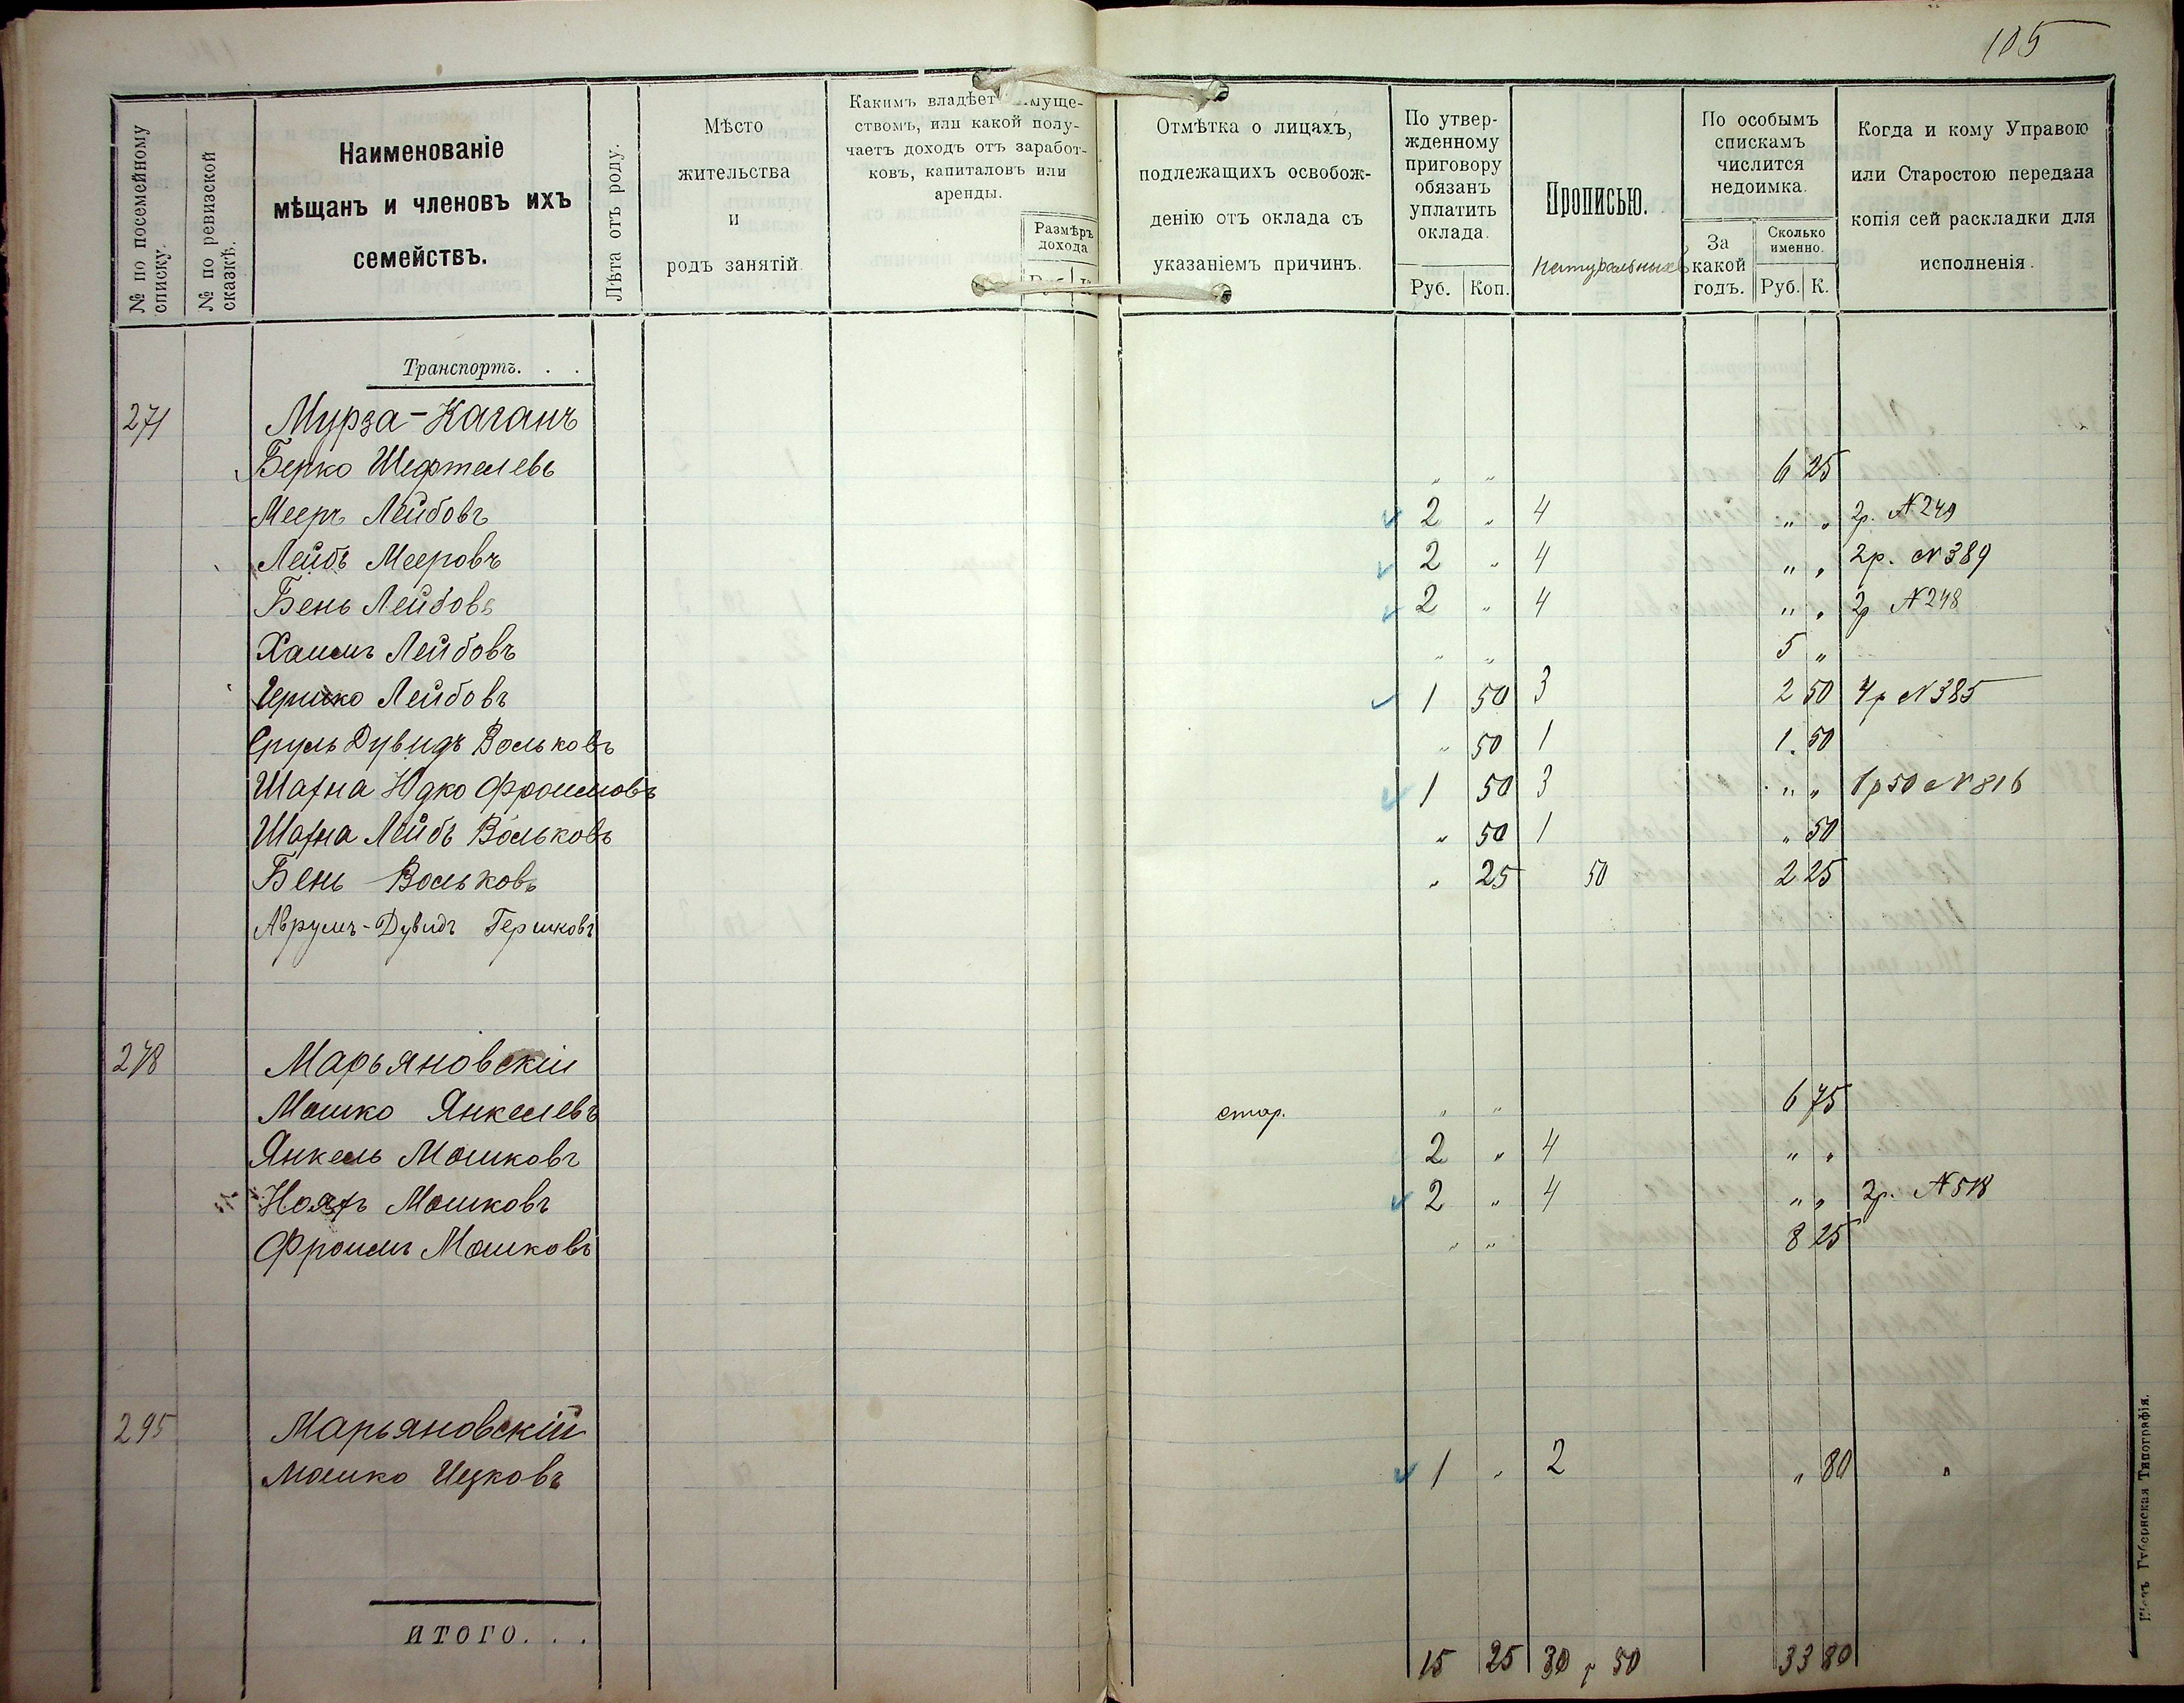 105
№ по посемейному списку.
№ по ревизской сказкѣ.
Наименованіе
мѣщанъ и членовъ ихъ
семействъ.
Лѣта отъ роду.
Мѣсто
жительства
и
родъ занятій.
Какимъ владѣетъ имуще-
ствомъ, или какой полу-
чаетъ доходъ отъ заработ-
ковъ, капиталовъ или
аренды.
Размѣръ
дохода
Отмѣтка о лицахъ,
подлежащихъ освобож-
денію отъ оклада съ
указаніемъ причинъ.
По утвер-
жденному
приговору
обязанъ
уплатить
оклада.
Руб. Коп.
Прописью.
Натуральныхъ
По особымъ
спискамъ
числится
недоимка.
За
какой
годъ.
Сколько
именно.
Руб. К.
Когда и кому Управою
или Старостою передана
копія сей раскладки для
исполненія.
Транспортъ. . .
271 Мурза-Каганъ
Берко Шефтелевъ " " 6 25
Мееръ Лейбовъ 2 " 4 " " 2р. N 249
Лейбъ Мееровъ 2 " 4 " " 2р. N 389
Бень Лейбовъ 2 " 4 " " 2р N 248
Хаимъ Лейбовъ " " 5 "
Гершко Лейбовъ 1 50 3 2 50 4р N 385
Сруль Дувидъ Вольковъ " 50 1 1. 50
Шахна Юдко Фроимовъ 1 50 3 " " 1р 50 N 816
Шахна Лейбъ Вольковъ " 50 1 " 50
Бень Вольковъ " 25 50 2 25
Аврумъ-Дувидъ Гершковъ
278 Марьяновскій
Мошко Янкелевъ стар. " " 6 75
Янкель Мошковъ 2 " 4 " "
Мошковъ 2 " 4 " " 2р. N 518
Фроимъ Мошковъ " " 8 25
295 Марьяновскій
Мошко Ицковъ 1 " 2 " 80 "
ИТОГО. . . 15 25 30 р 50 33 80
Губернская Типографія.